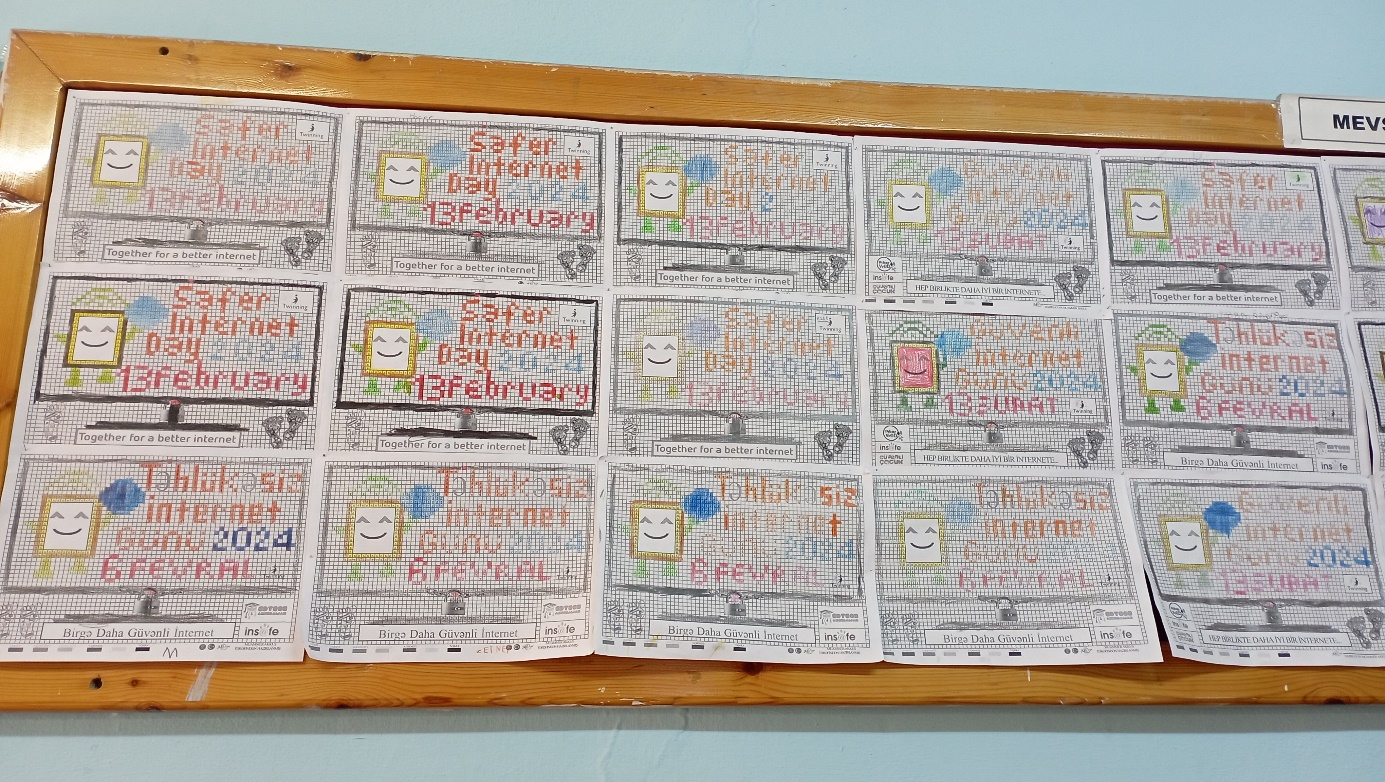 MEVS
Safer
Internet
Day 2024
13 February
Twinning
Together for a better internet
Safer
Internet
Day 2024
13 February
Twinning
Together for a better internet
Safer
Internet
Day 2
13 February
Twinning
Together for a better internet
Güvenli
internet
Günü 2024
13 ŞUBAT
Twinning
insafe
HEP BİRLİKTE DAHA İYİ BİR İNTERNETE
Safer
Internet
Day 2024
13 February
Twinning
Together for a better internet
Safer
Internet
Day 2024
13 February
Twinning
Together for a better internet
Safer
Internet
Day 2024
13 February
Twinning
Together for a better internet
Safer
Internet
Day 2024
13 February
Twinning
Together for a better internet
Güvenli
internet
Günü 2024
13 ŞUBAT
Twinning
insafe
HEP BİRLİKTE DAHA İYİ BİR İNTERNETE...
Təhlükəsiz
internet
Günü 2024
6 FEVRAL
Birgə Daha Güvənli İnternet
insafe
Təhlükəsiz
internet
Günü 2024
6 FEVRAL
Birgə Daha Güvənli İnternet
insafe
Təhlükəsiz
internet
Günü 2024
6 FEVRAL
Birgə Daha Güvənli İnternet
insafe
Təhlükəsiz
internet
Günü 2024
6 FEVRAL
Birgə Daha Güvənli İnternet
insafe
Təhlükəsiz
internet
Günü
6 FEVRAL
Birgə Daha Güvənli İnternet
insafe
Güvenli
internet
Günü 2024
13 ŞUBAT
HEP BİRLİKTE DAHA İYİ BİR İNTERNETE...